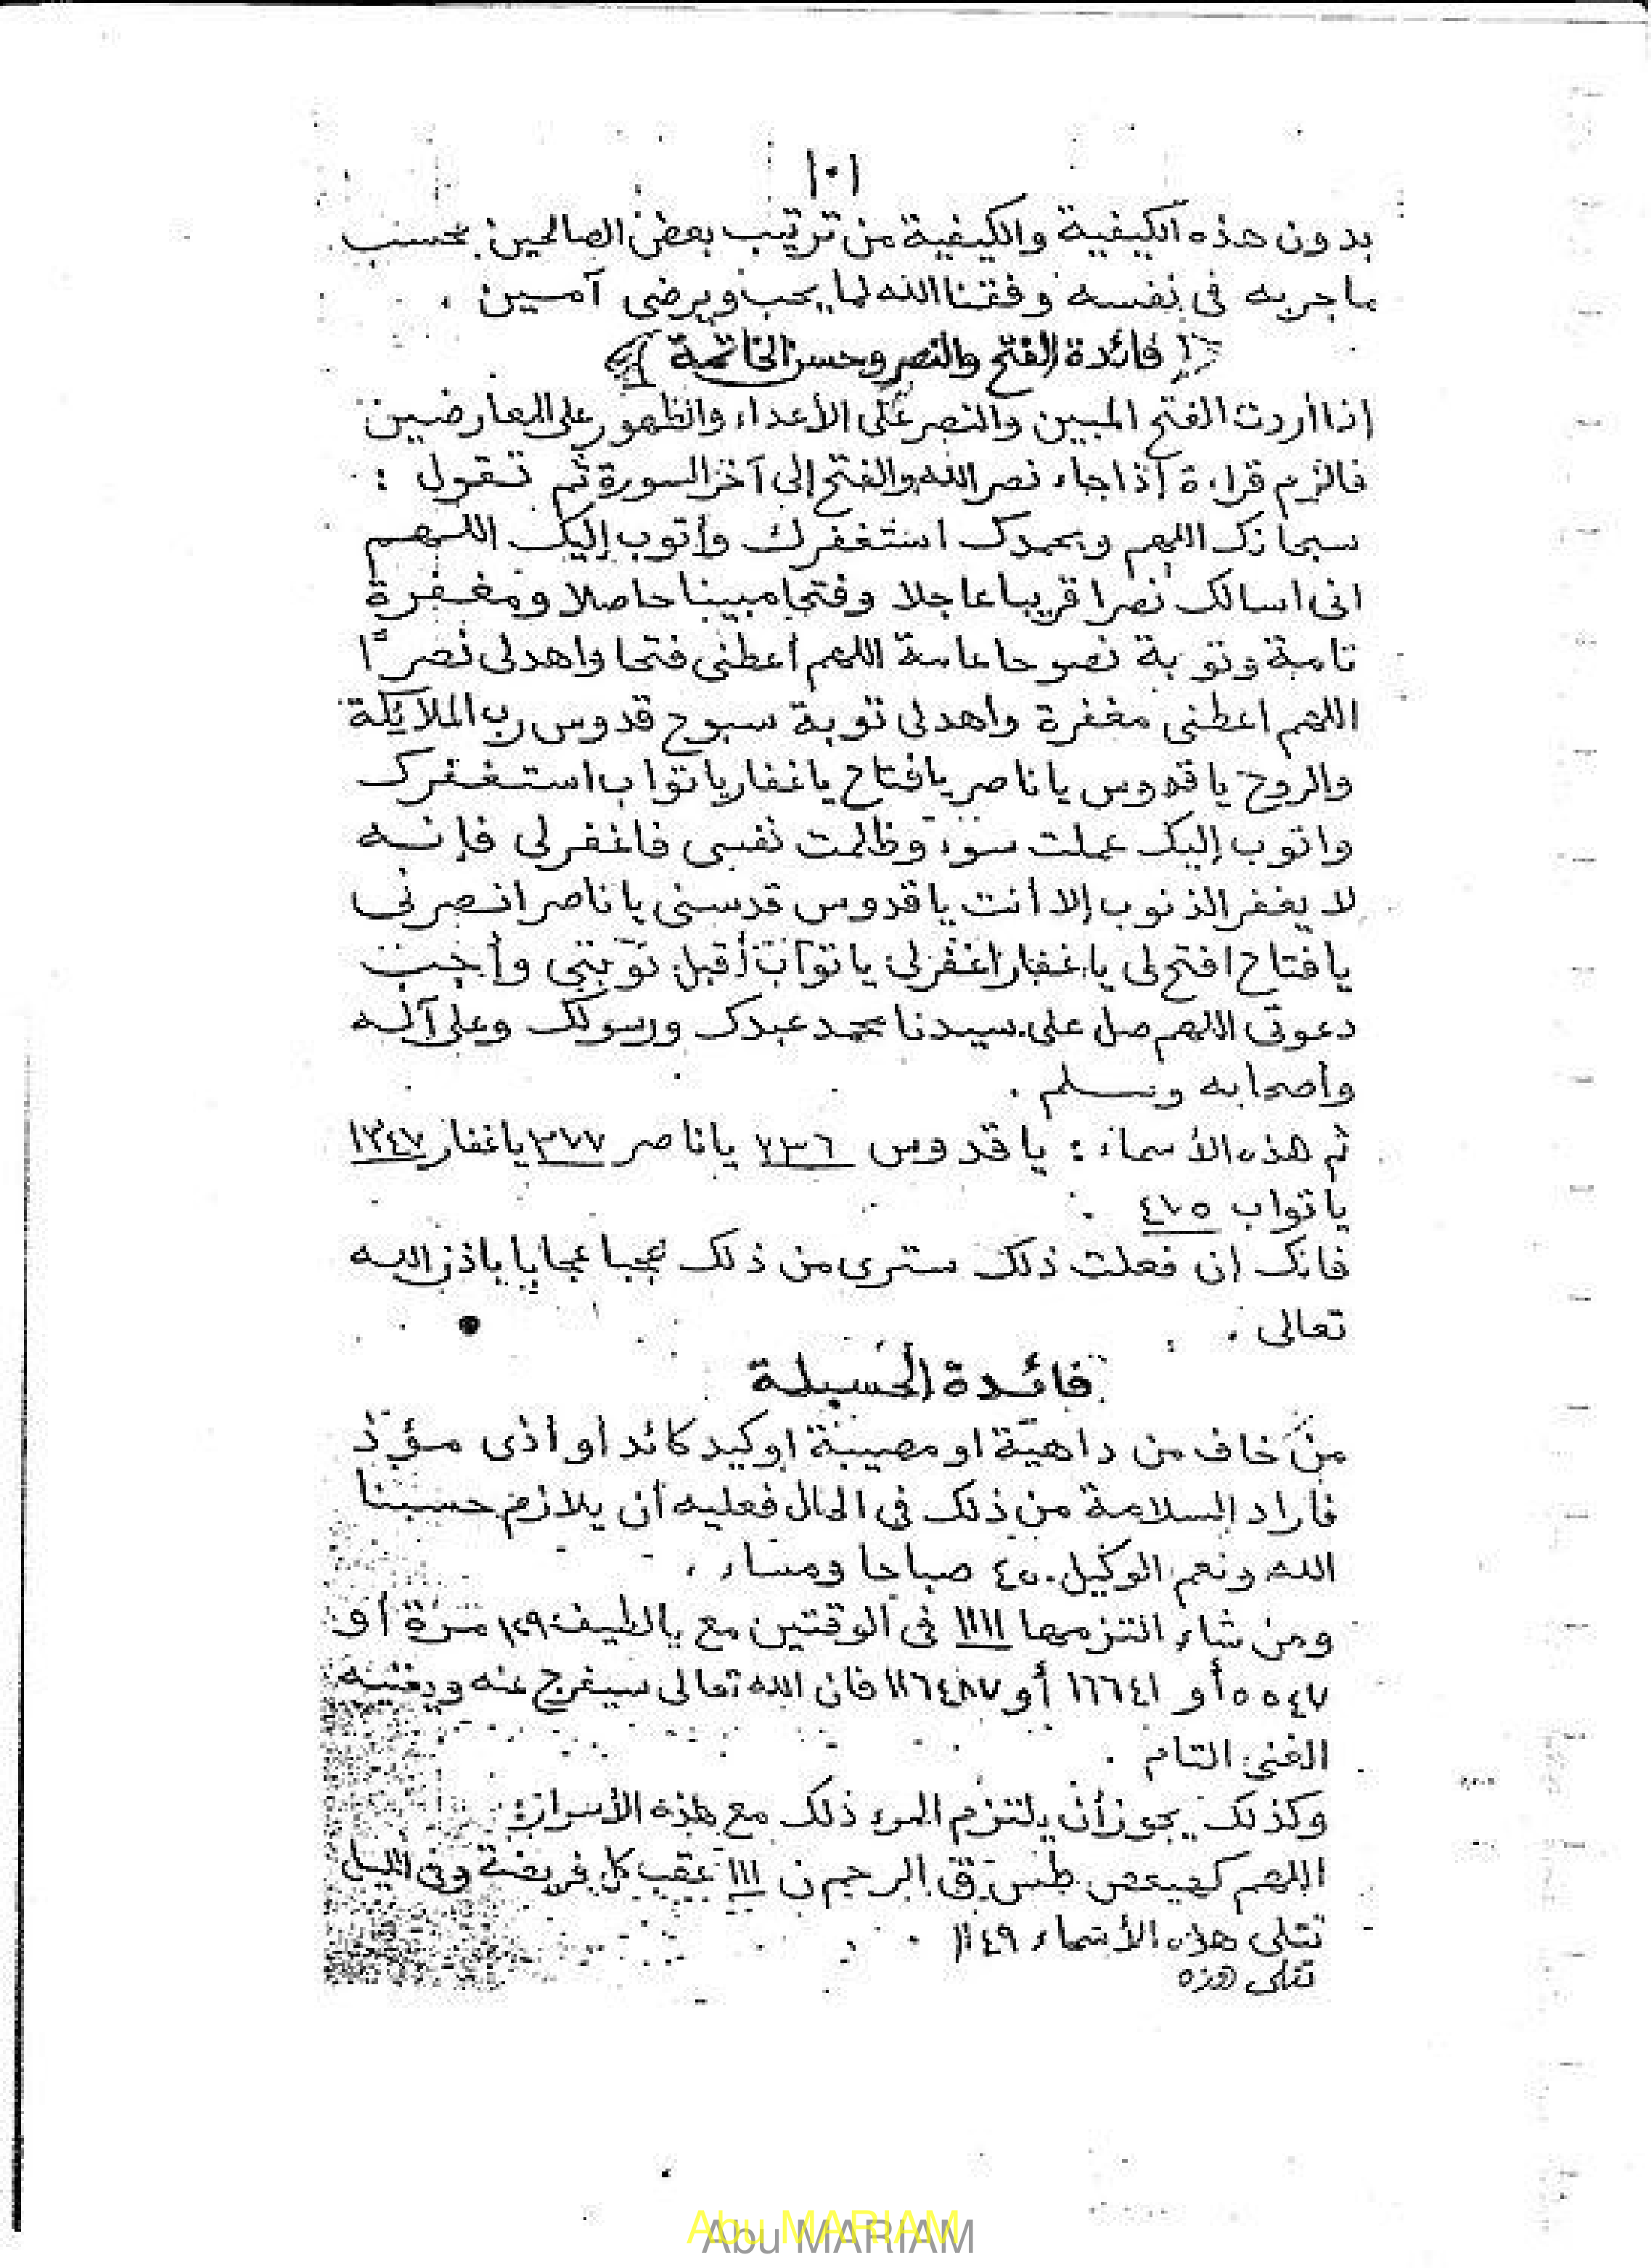 ١٠١
بدون هذه الكيفية والكيفية من ترتيب بعض الصالحين بحسب
ما جربه فى نفسه وفقنا الله لما يحب ويرضى آمسين .
﴿ فائدة الفتح والنصر وحسن الخاتمة ﴾
إذا أردت الفتح المبين والنصر على الأعداء والظهور على المعارضين
فالزم قراءة إذا جاء نصر الله والفتح إلى آخر السورة ثم تقول :
سبحانك اللهم وبحمدك استغفرك وأتوب إليك اللهم
انى اسالك نصرا قريبا عاجلا وفتحا مبينا حاصلا ومغفرة
تامة وتوبة نصوحا عامة اللهم أعطنى فتحا واهد لى نصرًا
اللهم اعطنى مغفرة واهد لى توبة سبوح قدوس رب الملائكة
والروح يا قدوس يا ناصر يا فتاح يا غفار يا تواب استغفرك
واتوب إليك عملت سوء وظلمت نفسى فاغفر لى فإنه
لا يغفر الذنوب إلا أنت يا قدوس قدسنى يا ناصر انصرنى
يا فتاح افتح لى يا غفار اغفر لى يا تواب أقبل توبتى وأجب
دعوتى اللهم صل على سيدنا محمد عبدك ورسولك وعلى آله
وأصحابه وسلم .
ثم هذه الأسماء : يا قدوس ٢٣٦ يا ناصر ٣٧٧ يا غفار ١٣٤٧
يا تواب ٤٧٥ .
فانك إن فعلت ذلك سترى من ذلك عجبا عجابا باذن الله
تعالى .
فائدة الحسبلة
من خاف من داهية او مصيبة اوكيد كائد أو أذى مؤذ
فأراد السلامة من ذلك فى الحال فعليه أن يلازم حسبنا
الله ونعم الوكيل ٤٥٠ صباحا ومساء .
ومن شاء التزمها ١١١١ فى الوقتين مع يا لطيف ١٢٩ مرة أو
٥٥٤٧ أو ١٦٦٤١ أو ١١٦٤٨٧ فان الله تعالى سيفرج عنه ويغنيه
الغنى التام .
وكذلك يجوز أن يلتزم المرء ذلك مع هذه الأسرار :
اللهم كهيعص طس ق الرحيم ن ١١١ عقب كل فريضة وفى الليل
تتلى هذه الأسماء ١١٤٩
تتلى هذه
Abu MARIAM